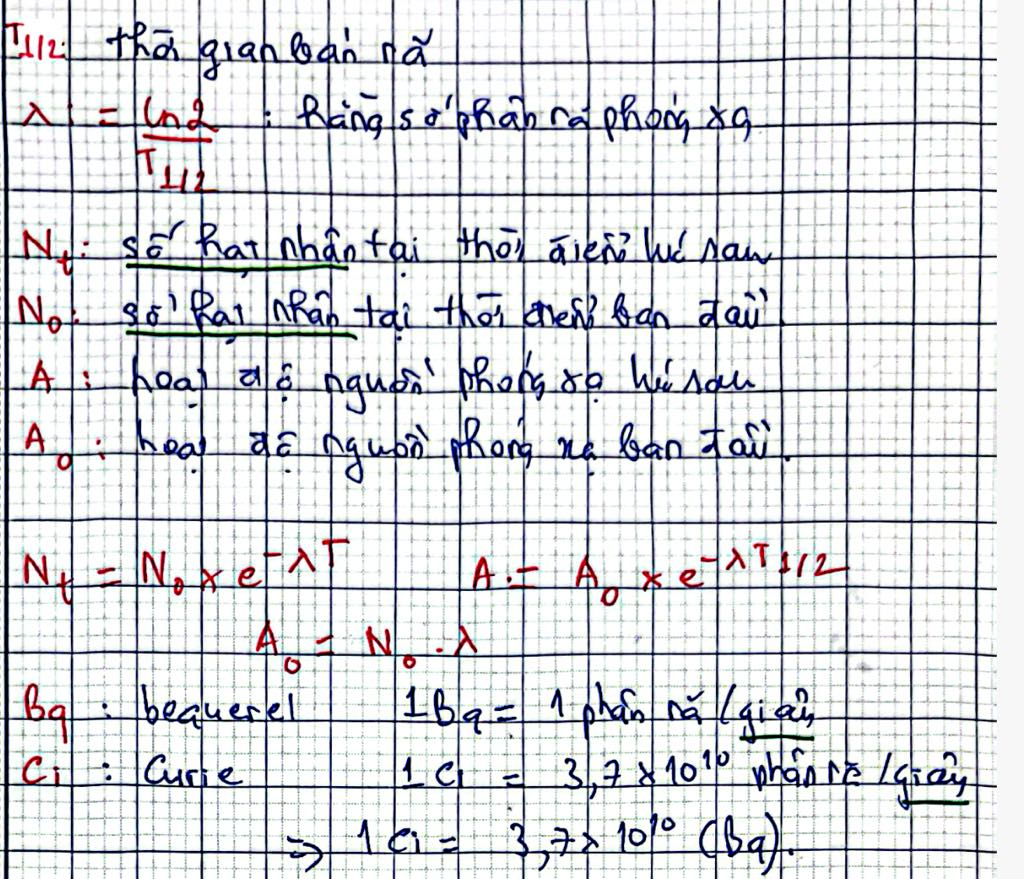 T1/2: thời gian bán rã
λ = ln2 / T1/2 : hằng số phân rã phóng xạ
Nt: số hạt nhân tại thời điểm lúc sau
N0: số hạt nhân tại thời điểm ban đầu.
A : hoạt độ nguồn phóng xạ lúc sau
A0 : hoạt độ nguồn phóng xạ ban đầu.
Nt = N0 × e^-λT A = A0 × e^-λT1/2
A0 = N0 . λ
Bq : bequerel 1Bq = 1 phân rã /giây
Ci : Curie 1 Ci = 3,7 × 10^10 phân rã /giây
⇒ 1 Ci = 3,7 × 10^10 (Bq).